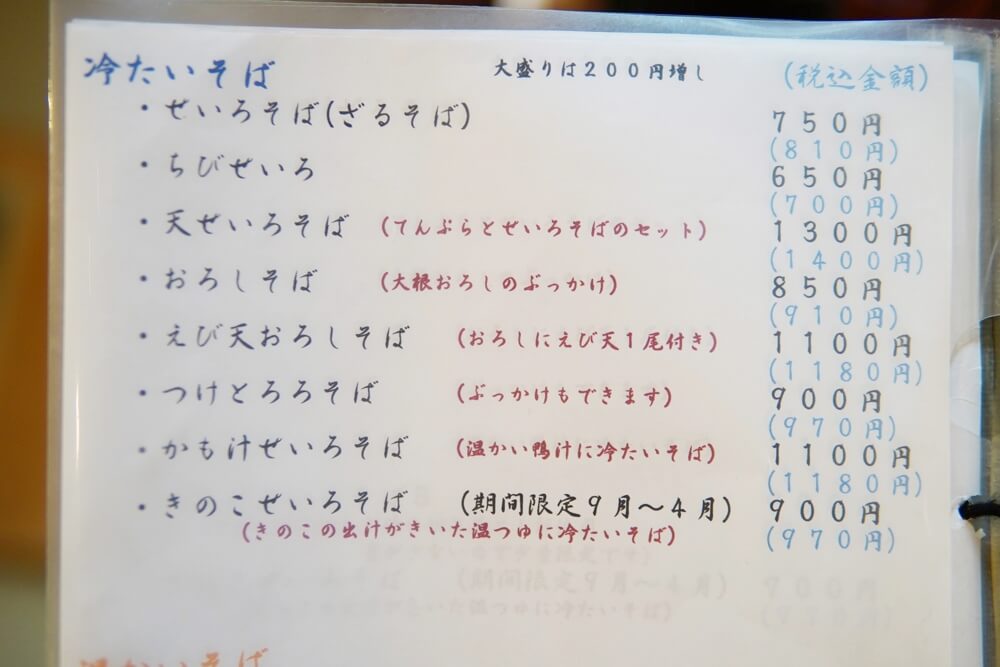 冷たいそば 大盛りは200円増し (税込金額)
・せいろそば(ざるそば) 750円
(810円)
・ちびせいろ 650円
(700円)
・天ぜいろそば (てんぷらとせいろそばのセット) 1300円
(1400円)
・おろしそば (大根おろしのぶっかけ) 850円
(910円)
・えび天おろしそば (おろしにえび天1尾付き) 1100円
(1180円)
・つけとろろそば (ぶっかけもできます) 900円
(970円)
・かも汁せいろそば (温かい鴨汁に冷たいそば) 1100円
(1180円)
・きのこせいろそば (期間限定9月〜4月) 900円
(きのこの出汁がきいた温つゆに冷たいそば) (970円)
温かいそば